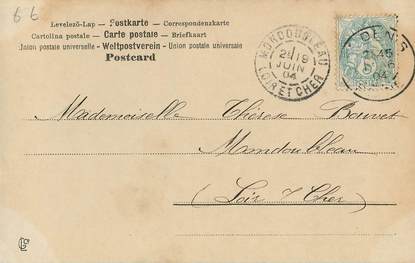 Levelező-Lap — Postkarte — Correspondenzkarte
Cartolina postale — Carte postale — Briefkaart
Union postale universelle — Weltpostverein — Union postale universale
Postcard
MONDOUBLEAU
2E 19
JUIN
04
LOIR ET CHER
DENIS
04
Mademoiselle Thérèse Bouvet
Mondoubleau
Loir & Cher